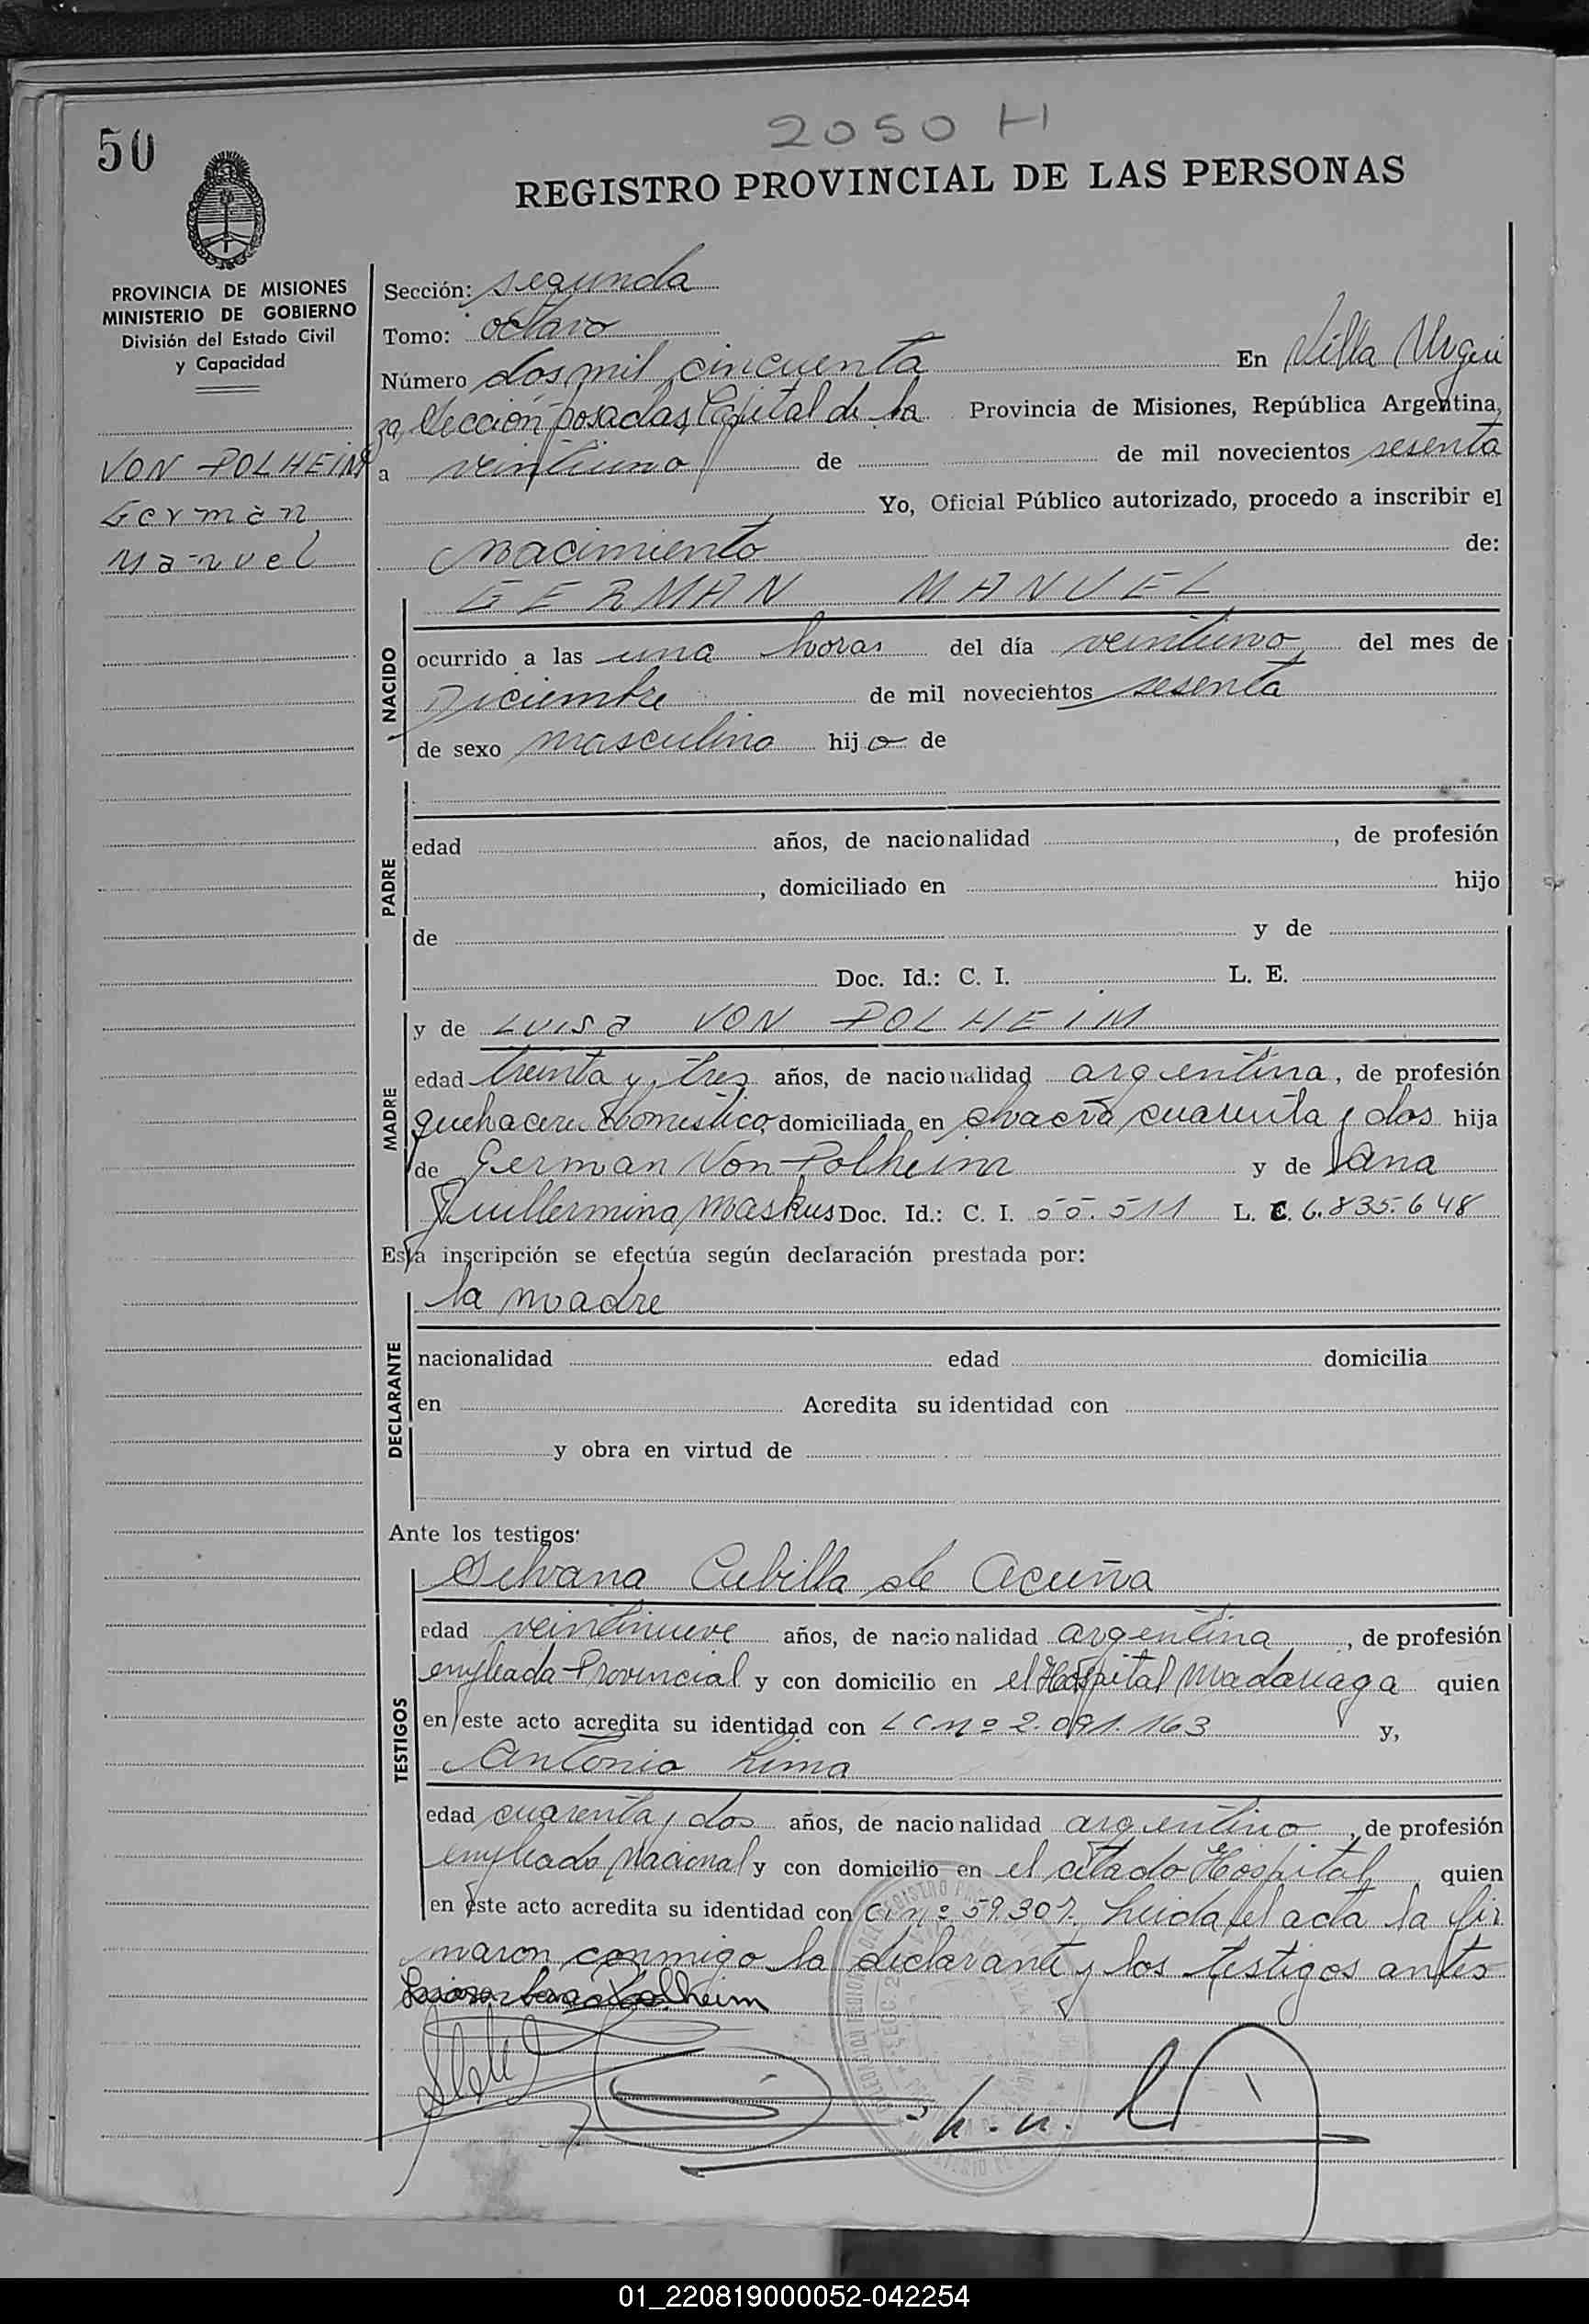 2050 H
50
REGISTRO PROVINCIAL DE LAS PERSONAS
PROVINCIA DE MISIONES
MINISTERIO DE GOBIERNO
División del Estado Civil
y Capacidad
VON POLHEIM
German
Manuel
Sección: segunda
Tomo: octavo
Número dos mil cincuenta En Villa Urqui
za, Sección posadas, Capital de la Provincia de Misiones, República Argentina,
a veintiuno de de mil novecientos sesenta
Yo, Oficial Público autorizado, procedo a inscribir el
Nacimiento de:
GERMAN MANUEL
NACIDO
ocurrido a las una horas del día veintiuno del mes de
Diciembre de mil novecientos sesenta
de sexo masculino hijo de
PADRE
edad años, de nacionalidad , de profesión
, domiciliado en hijo
de y de
Doc. Id.: C. I. L. E.
MADRE
y de Luisa VON POLHEIM
edad treinta y tres años, de nacionalidad argentina, de profesión
quehaceres domestico, domiciliada en chacra cuarenta y dos hija
de German Von Polheim y de Ana
Guillermina Maskus Doc. Id.: C. I. 55.511 L. C. 6.835.648
Esta inscripción se efectúa según declaración prestada por:
la madre
DECLARANTE
nacionalidad edad domicilia
en Acredita su identidad con
y obra en virtud de
Ante los testigos:
TESTIGOS
Silvana Cubilla de Acuña
edad veintinueve años, de nacionalidad argentina, de profesión
empleada Provincial y con domicilio en el Hospital Madariaga quien
en este acto acredita su identidad con L C nº 2.091.163 y,
Antonio Lima
edad cuarenta y dos años, de nacionalidad argentino, de profesión
empleado Nacional y con domicilio en el citado Hospital, quien
en este acto acredita su identidad con C.i. nº 59.307. Leida el acta la fir
maron conmigo la declarante y los testigos antes
Polheim
01_220819000052-042254